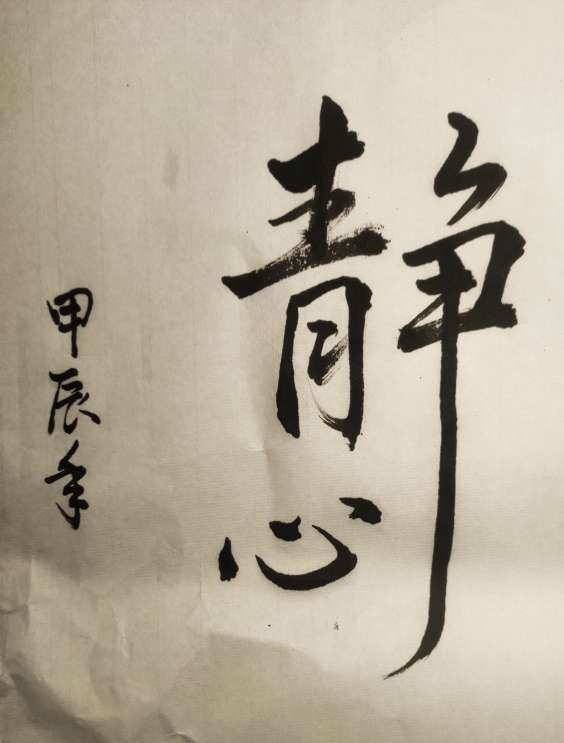 静心
甲辰年